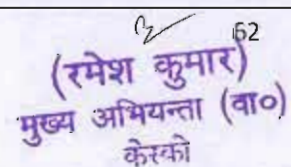 62
(रमेश कुमार)
मुख्य अभियन्ता (वा०)
केस्को